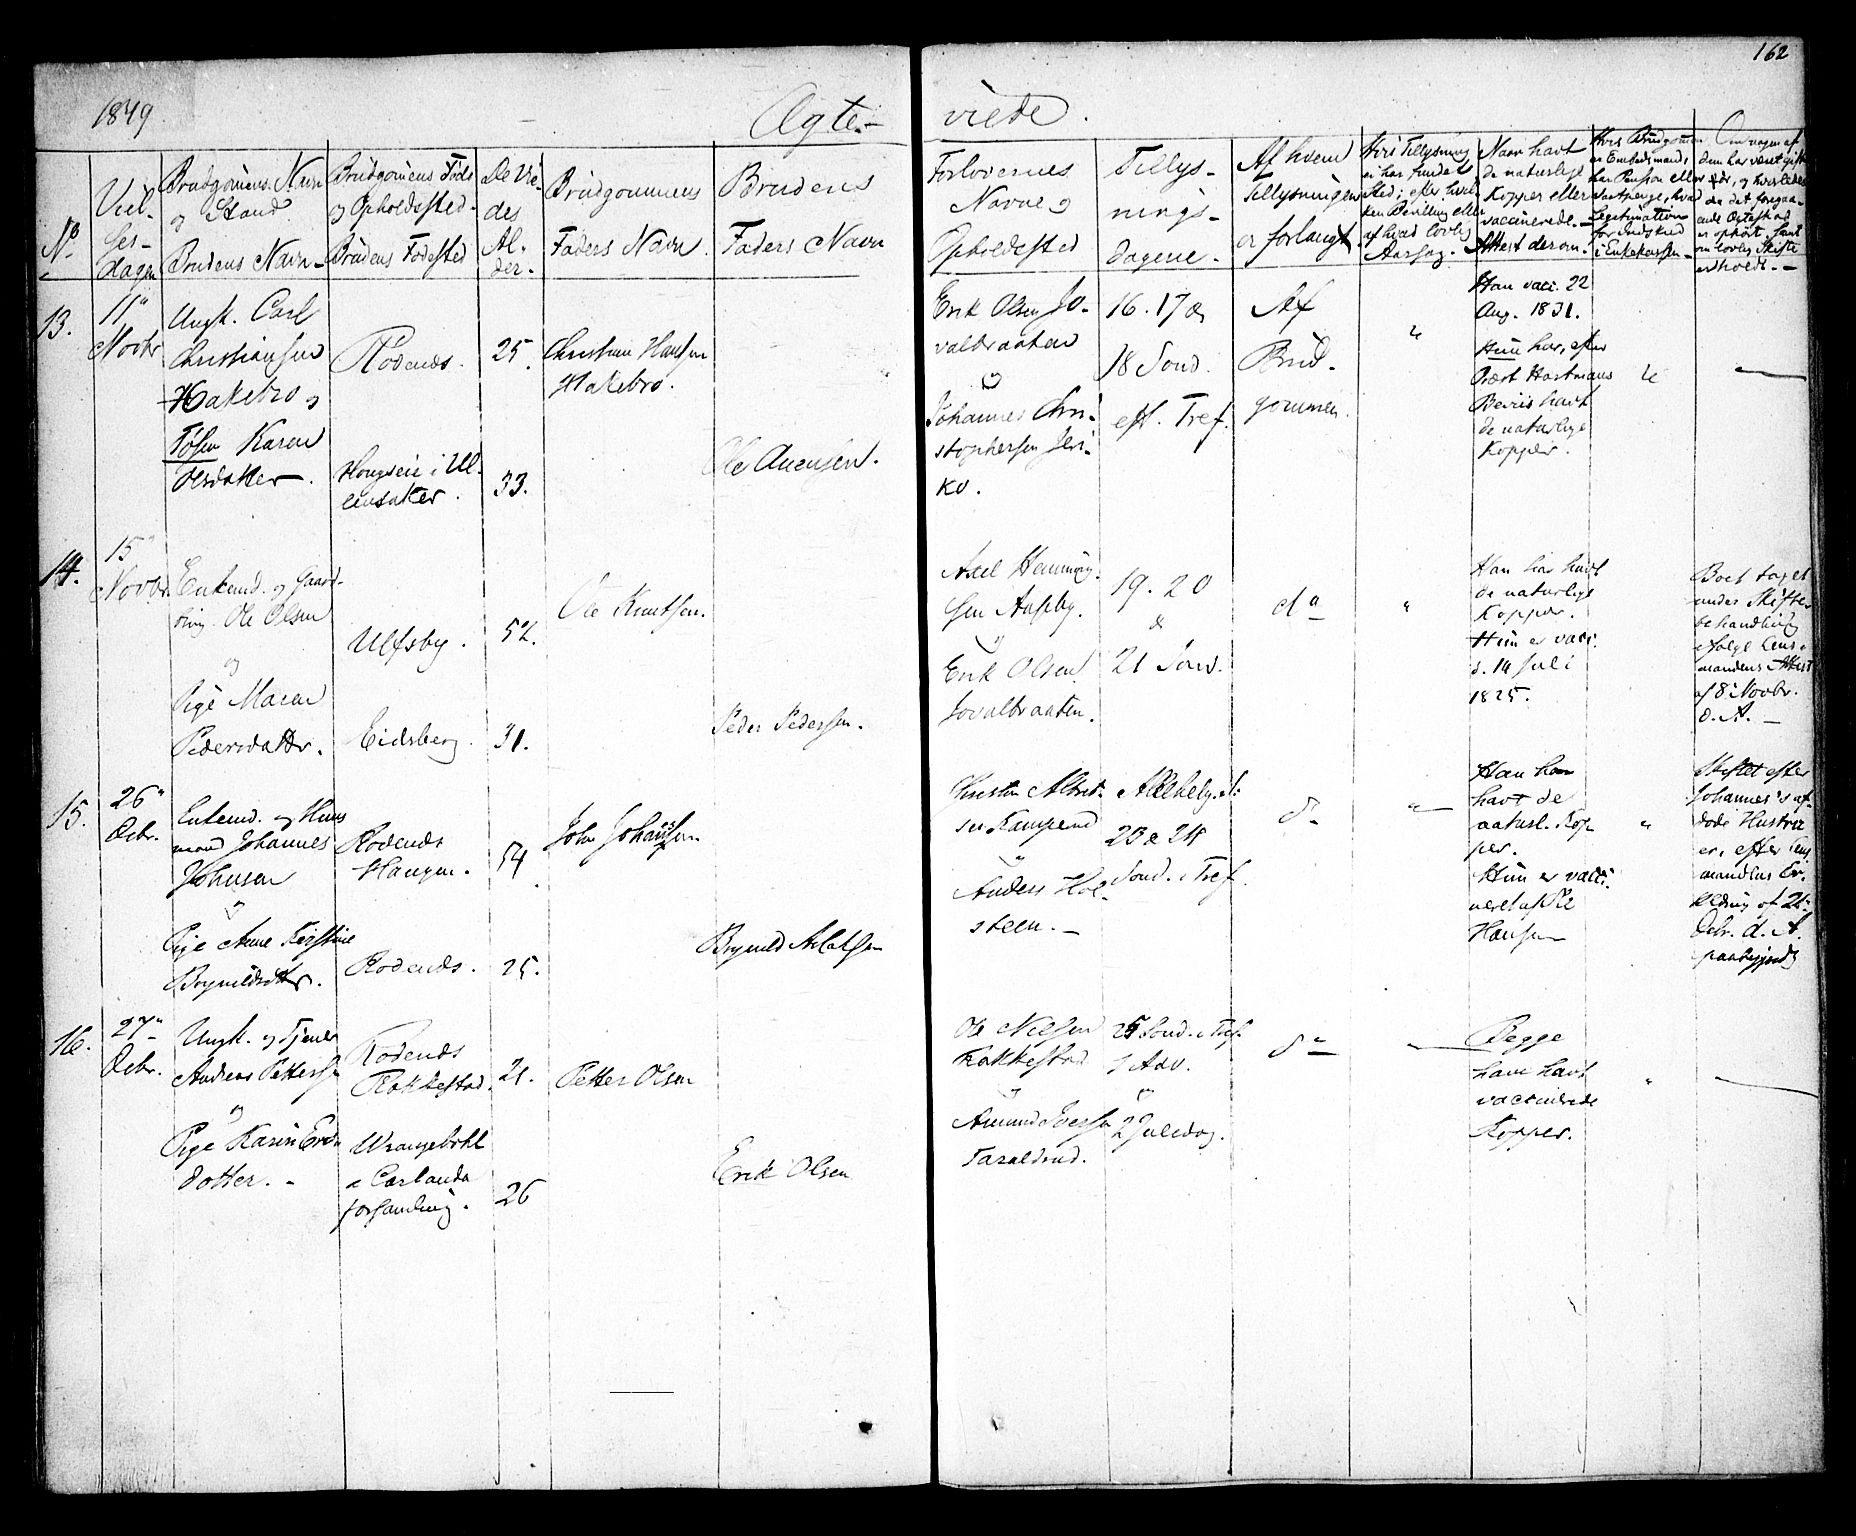 162
1849
Ægte-
viede.
No
Viel-
ses-
dagen
Brudgomens Navn
og Stand.
Brudens Navn-
Brudgomens Føde
og Opholdssted-
Brudens Fødested
De Vie-
des
Al-
der.
Brudgommens
Faders Navn.
Brudens
Faders Navn
Forlovernes
Navne og
Opholdssted
Tillys-
nings-
dagene.
Af hvem
Tillysningen
er forlangt
Hvis Tillysning
ei har fundet
Sted; efter hvil-
ken Bevilling eller
af hvad lovlig
Aarsag.
Naar havt
de naturlige
Kopper eller
vaccinerede.
Attest derom.
Hvis Brudgomen
er Embedsmand;
har Pension eller
Vartpenge, hvad
Legitimation
for Indskud
i Enkekassen-
Om nogen af
dem har været gift
før, og hvorledes
da det foregaa-
ende Ægtesk. af
er ophørt. Samt
om lovlig Skifte
er holdt.-
13.
11"
Novbr
Ungk. Carl
Christiansen
Hakebro og
Tøsen Karen
Olsdatter-.
Rødends.
Hougseie i Ul-
lensaker.
25.
33.
Christian Hansen
Hakebro.
Ole Auensen.
Erik Olsen Jo-
valbraaten
og
Johannes Chri-
stophersen Jeri-
ko.
16. 17 &
18 Sønd.
eft. Tref.
Af
Brud-
gommen.
"
Han vacc. 22
Aug. 1831.
Hun har, efter
Præst Hartmans
Beviis havt
de naturlige
Kopper.
"
-
14.
15"
Novbr.
Enkemd. og Gaard-
brug. Ole Olsen
og
Pige Maren
Pedersdattr.
Ulfsby.
Eidsberg.
52.
31.
Ole Knutsen.
Peder Pedersen.
Axel Henning-
sen Aasby.
og
Erik Olsen
Jovalbraaten.
19. 20
&
21 Sønd.
do
"
Han har havt
de naturlige
Kopper.
Hun er vacc.
d. 14 Juli
1825.
Boet taget
under Skifte-
behandling
ifølge Lens-
mandens Attest
af 8 Novbr.
d. A. -
15.
26"
Dcbr.
Enkemd. og Huus
mand Johannes
Johnsen
og
Pige Anne Kirstine
Brynildsdttr.
Rødends
Haugen.
Rødends.
54.
25.
John Johannssen
Brynild
Kampenud
og
Anders Hol-
steen. -
Allehelg.d:
23 & 24
Sønd. e Tref.
do
"
Han har
havt de
naturl. Kop
per.
Hun er vacci-
neret af Ole
Hansen
"
Skiftet efter
Johannes's af-
døde Hustru
er, efter Lens
mandens Er-
klæring af 21
Dcbr. d. A.
paabegyndt
16.
27"
Dcbr.
Ungk. og Tjener
Andreas Petterse
og
Pige Karin Eriks
dotter. -
Rødends
Rakkestad.
Wrangebøhl
i Carlanda
forsamling.
21.
26
Petter Olsen
Erik Olsen
Ole Nielsen
Rakkestad
og
Amund Iversen
Taraldrud.
25 Sønd. e Tref.
1 Adv.
og
2 Juledag.
do
"
Begge
have havt
vaccinerede
Kopper.
"
-